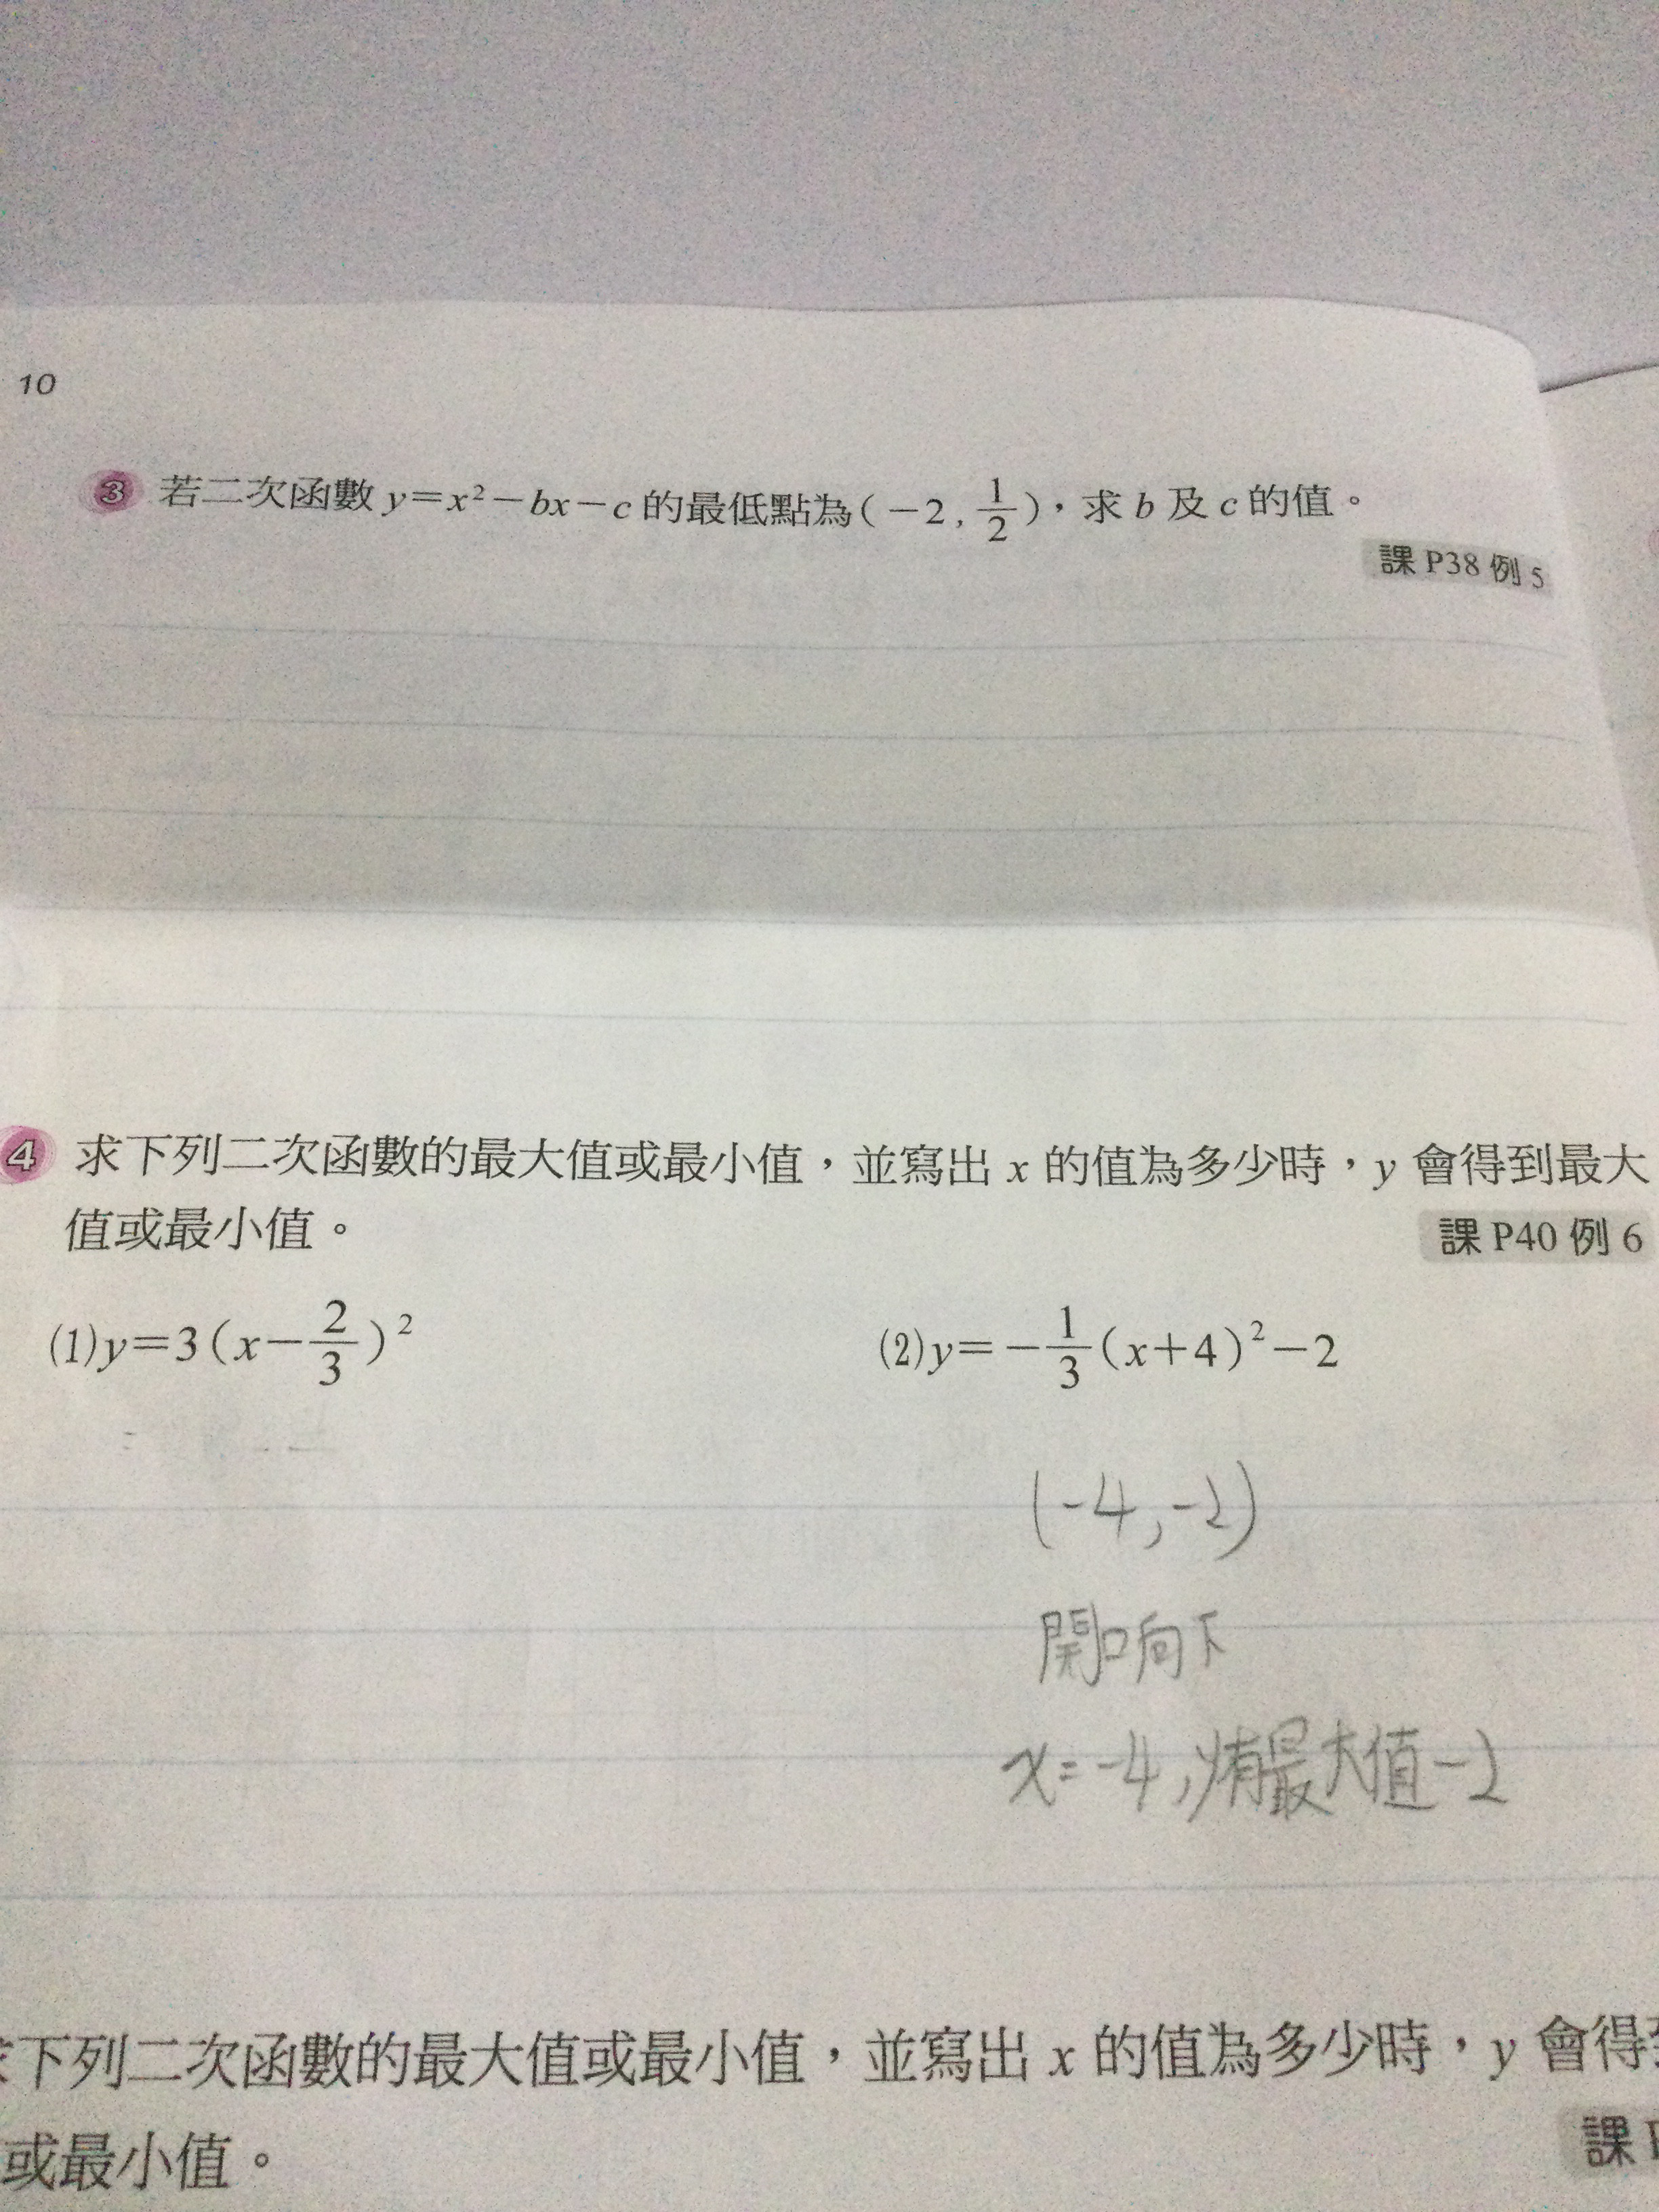 10
3 若二次函數 y=x²-bx-c 的最低點為(-2, 1/2),求 b 及 c 的值。
課 P38 例 5
4 求下列二次函數的最大值或最小值,並寫出 x 的值為多少時,y 會得到最大
值或最小值。
課 P40 例 6
(1)y=3(x-2/3)²
(2)y=-1/3(x+4)²-2
(-4,-2)
開口向下
x=-4,y有最大值-2
下列二次函數的最大值或最小值,並寫出 x 的值為多少時,y 會得
或最小值。
課